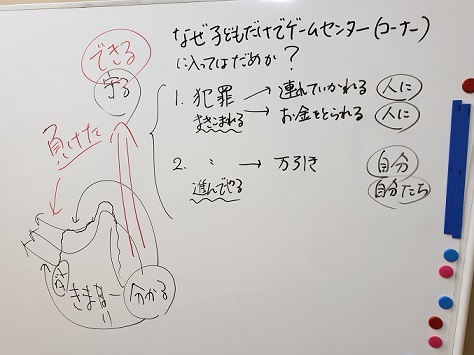 なぜ子どもだけでゲームセンター(コーナー)
に入ってはだめか?
1. 犯罪 → 連れていかれる 人に
まきこまれる → お金をとられる 人に
2. 〃 → 万引き 自分
進んでやる 自分たち
できる
守る
負けた
きまり
分かる